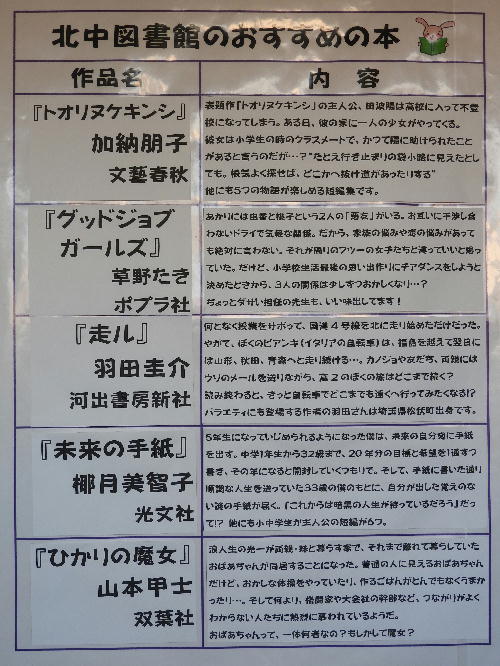 北中図書館のおすすめの本
作品名
内 容
『トオリヌケキンシ』
加納朋子
文藝春秋
表題作「トオリヌケキンシ」の主人公、田波陽は高校に入って不登
校になってしまう。ある日、彼の家に一人の少女がやってくる。
彼女は小学生の時のクラスメートで、かつて陽に助けられたこと
があると言うのだが…？“たとえ行き止まりの袋小路に見えたとし
ても。根気よく探せば、どこかへ抜け道があったりする”
他にも5つの物語が楽しめる短編集です。
『グッドジョブ
ガールズ』
草野たき
ポプラ社
あかりには由香と桃子という2人の「悪友」がいる。お互いに干渉し合
わないドライで気軽な関係。だから、家族の悩みや恋の悩みがあって
も絶対に言わない。それが周りのフツーの女子たちと違っていいと思っ
ていた。だけど、小学校生活最後の思い出作りにチアダンスをしようと
決めたときから、3人の関係は少しずつおかしくなり…？
ちょっとダサい担任の先生も、いい味出してます！
『走ル』
羽田圭介
河出書房新社
何となく授業をサボって、国道4号線を北に走り始めただけだった。
やがて、ぼくのビアンキ（イタリアの自転車）は、福島を越えて翌日に
は山形、秋田、青森へと走り続ける…。カノジョや友だち、両親には
ウソのメールを送りながら、高2のぼくの旅はどこまで続く？
読み終わると、きっと自転車でどこまでも遠くへ行ってみたくなる!?
バラエティにも登場する作者の羽田さんは埼玉県松伏町出身です。
『未来の手紙』
椰月美智子
光文社
5年生になっていじめられるようになった僕は、未来の自分宛に手紙
を出す。中学1年生から32歳まで、20年分の目標と希望を1通ずつ
書き、その年になると開封していくつもりで。そして、手紙に書いた通り
順調な人生を送っていた33歳の僕のもとに、自分が出した覚えのな
い謎の手紙が届く。「これからは暗黒の人生が待っているだろう」だっ
て!? 他にも小中学生が主人公の短編が6つ。
『ひかりの魔女』
山本甲士
双葉社
浪人生の光一が両親・妹と暮らす家で、それまで離れて暮らしていた
おばあちゃんが同居することになった。普通の人に見えるおばあちゃん
だけど、おかしな体操をやっていたり、作るごはんがとんでもなくうまか
ったり…。そして何より、格闘家や大会社の幹部など、つながりがよく
わからない人たちに熱烈に慕われているようだ。
おばあちゃんって、一体何者なの？もしかして魔女？